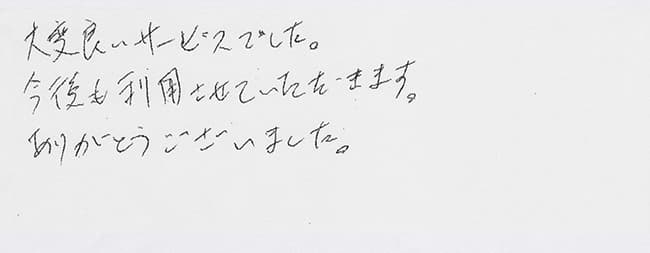 大変良いサービスでした。
今後も利用させていただきます。
ありがとうございました。